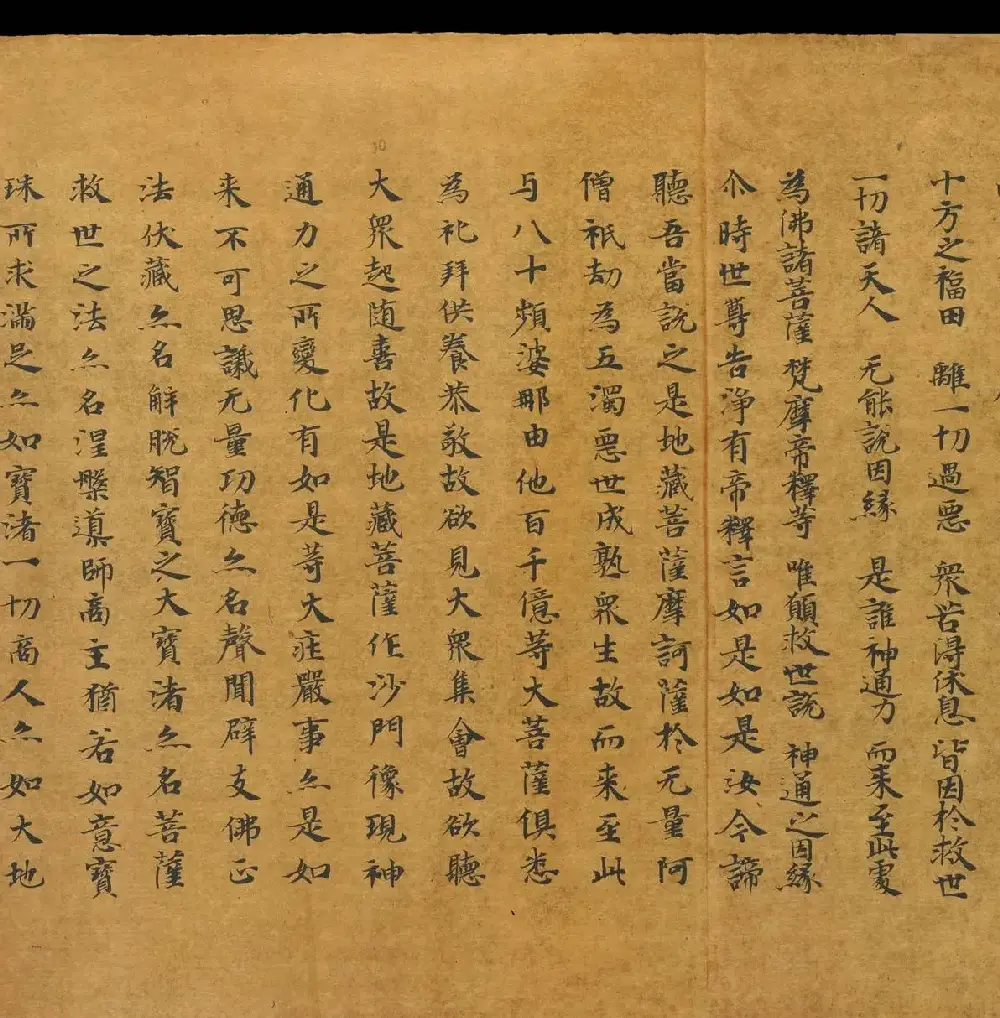 十方之福田　離一切過惡　衆苦得休息　皆因於救世
一切諸天人　无能說因縁　是誰神通力　而来至此䖏
為佛諸菩薩　梵摩帝釋䓁　唯願救世說　神通之因縁
尒時世尊告淨有帝釋言如是如是汝今諦
聽吾當說之是地藏菩薩摩訶薩於无量阿
僧祇劫為五濁惡世成熟衆生故而来至此
与八十頻婆那由他百千億䓁大菩薩俱悉
為礼拜供養恭敬故欲見大衆集會故欲聽
大衆起随喜故是地藏菩薩作沙門像現神
通力之所變化有如是䓁大莊嚴事亦是如
来不可思議无量功德亦名聲聞辟支佛正
法伏藏亦名解脫智寶之大寶渚亦名菩薩
救世之法亦名涅槃導師商主猶若如意寶
珠所求滿足亦如寶渚一切商人亦如大地